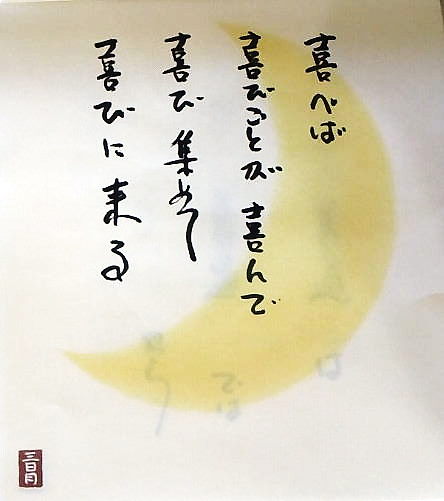 喜べば
喜びごとが喜んで
喜び集めて
喜びに来る
三日月